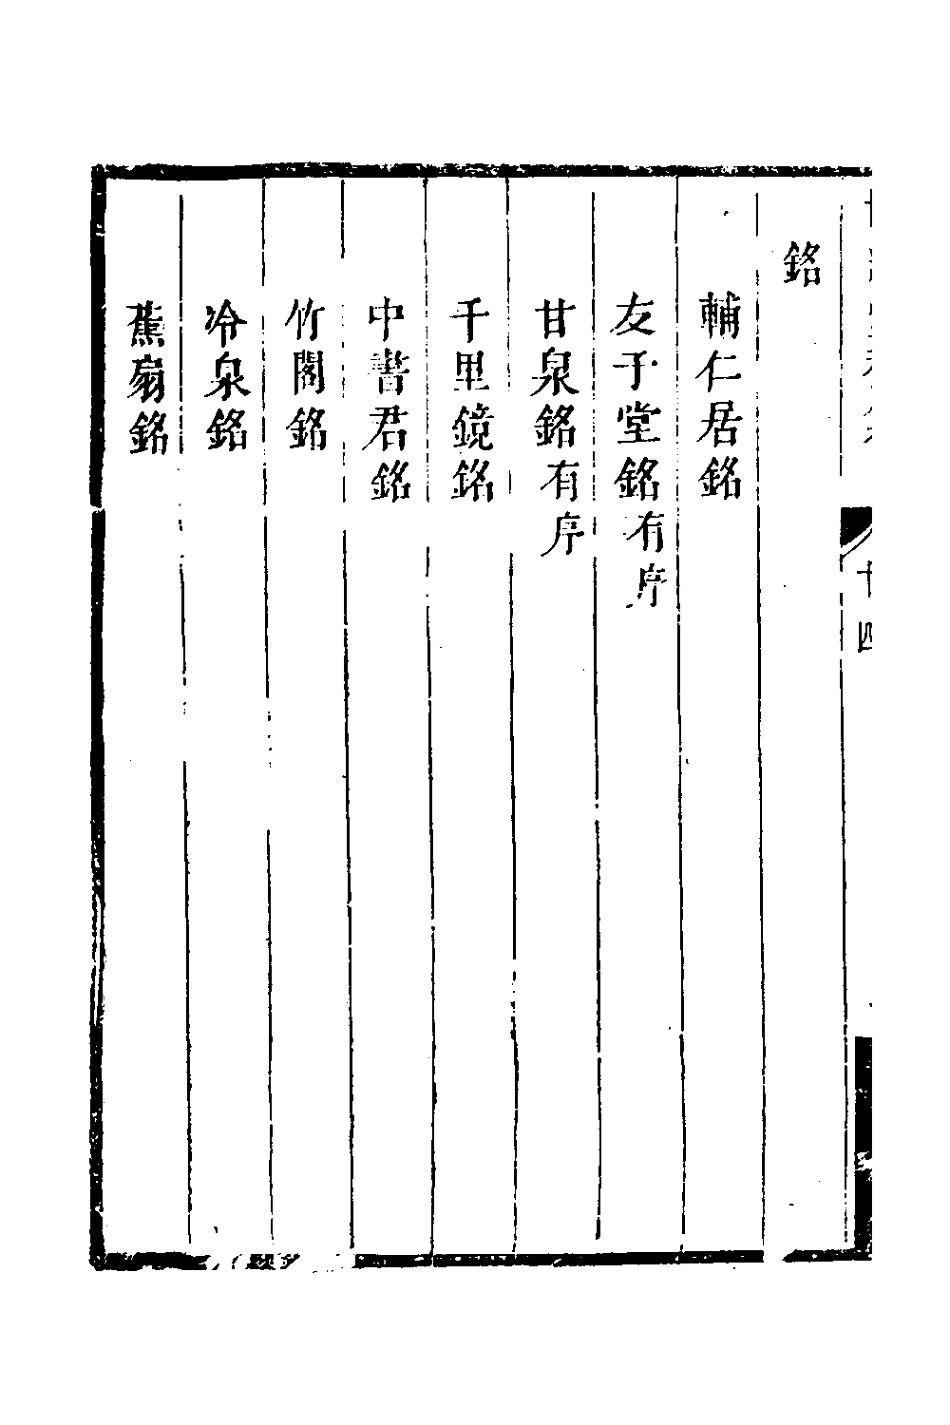 銘
輔仁居銘
友于堂銘有序
甘泉銘有序
千里鏡銘
中書君銘
竹閣銘
冷泉銘
蕉扇銘
廿四